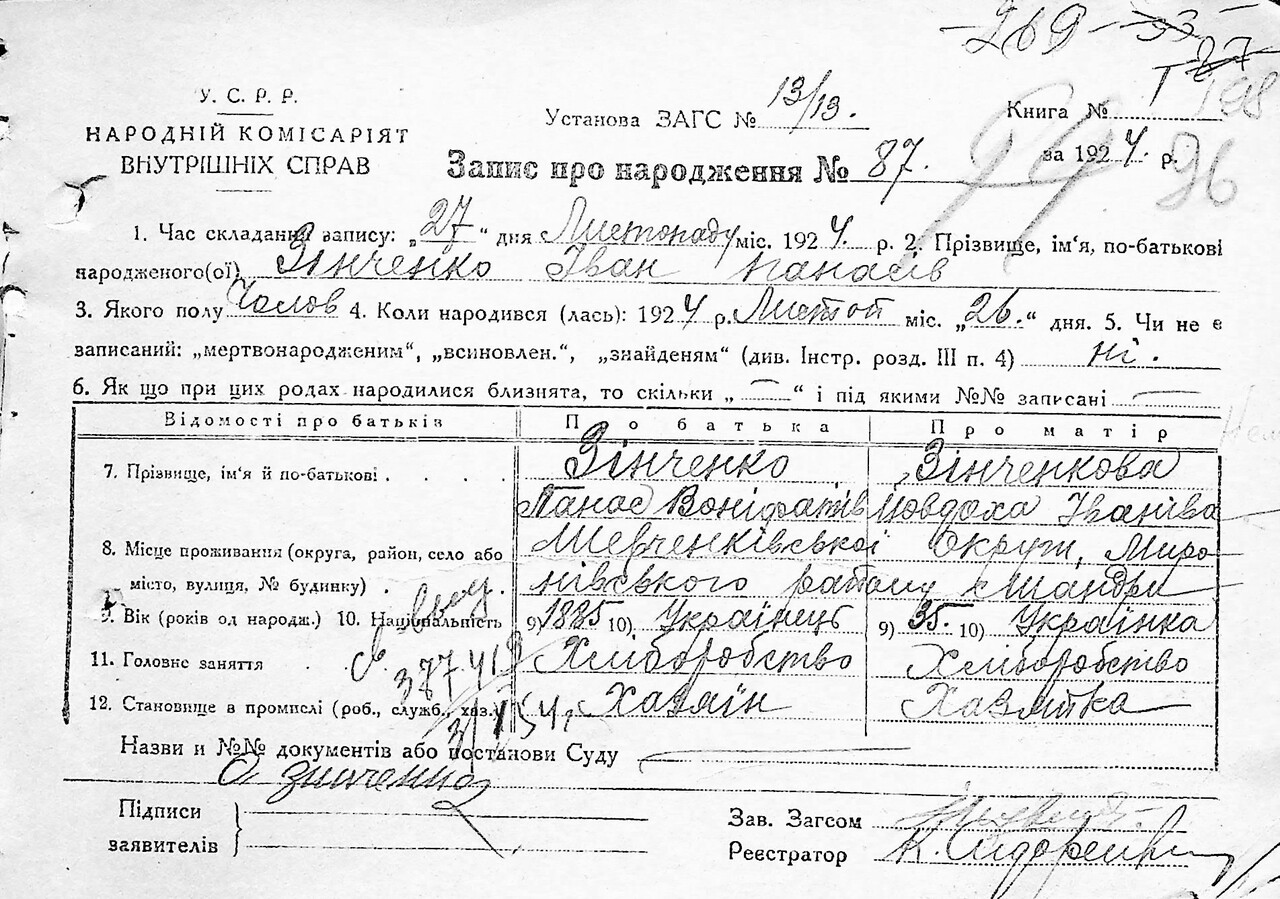 - 269 - 33 -
У. С. Р. Р.
НАРОДНІЙ КОМІСАРІЯТ
ВНУТРІШНІХ СПРАВ
Установа ЗАГС № 13/13.
Книга № 
Запис про народження № 87.
за 1924 р.
96
1. Час складання запису: „27“ дня Листопаду міс. 1924. р. 2. Прізвище, ім'я, по-батькові
народженого(ої) Зінченко Іван Панасів
3. Якого полу Чолов 4. Коли народився (лась): 1924 р. Листоп міс. „26.“ дня. 5. Чи не є
записаний: „мертвонародженим“, „всиновлен.“, „знайденям“ (див. Інстр. розд. III п. 4) ні.
6. Як що при цих родах народилися близнята, то скільки „—“ і під якими №№ записані —
Відомості про батьків Про батька Про матір
7. Прізвище, ім'я й по-батькові . . . . Зінченко Зінченкова
Панас Воніфатів Човдоха Іванівна
8. Місце проживання (округа, район, село або Шевченківської Округи, Миро
місто, вулиця, № будинку) . нівського району с Шандри
9. Вік (років од народж.) 10. Національність 9) 1885 10) Українець 9) 35. 10) Українка
11. Головне заняття . . Хліборобство Хліборобство
12. Становище в промислі (роб., служб., хаз.) Хазяїн Хазяйка
Назви и №№ документів або постанови Суду
О Зинченко
Підписи
заявителів
Зав. Загсом
Реєстратор К. Сидоренко